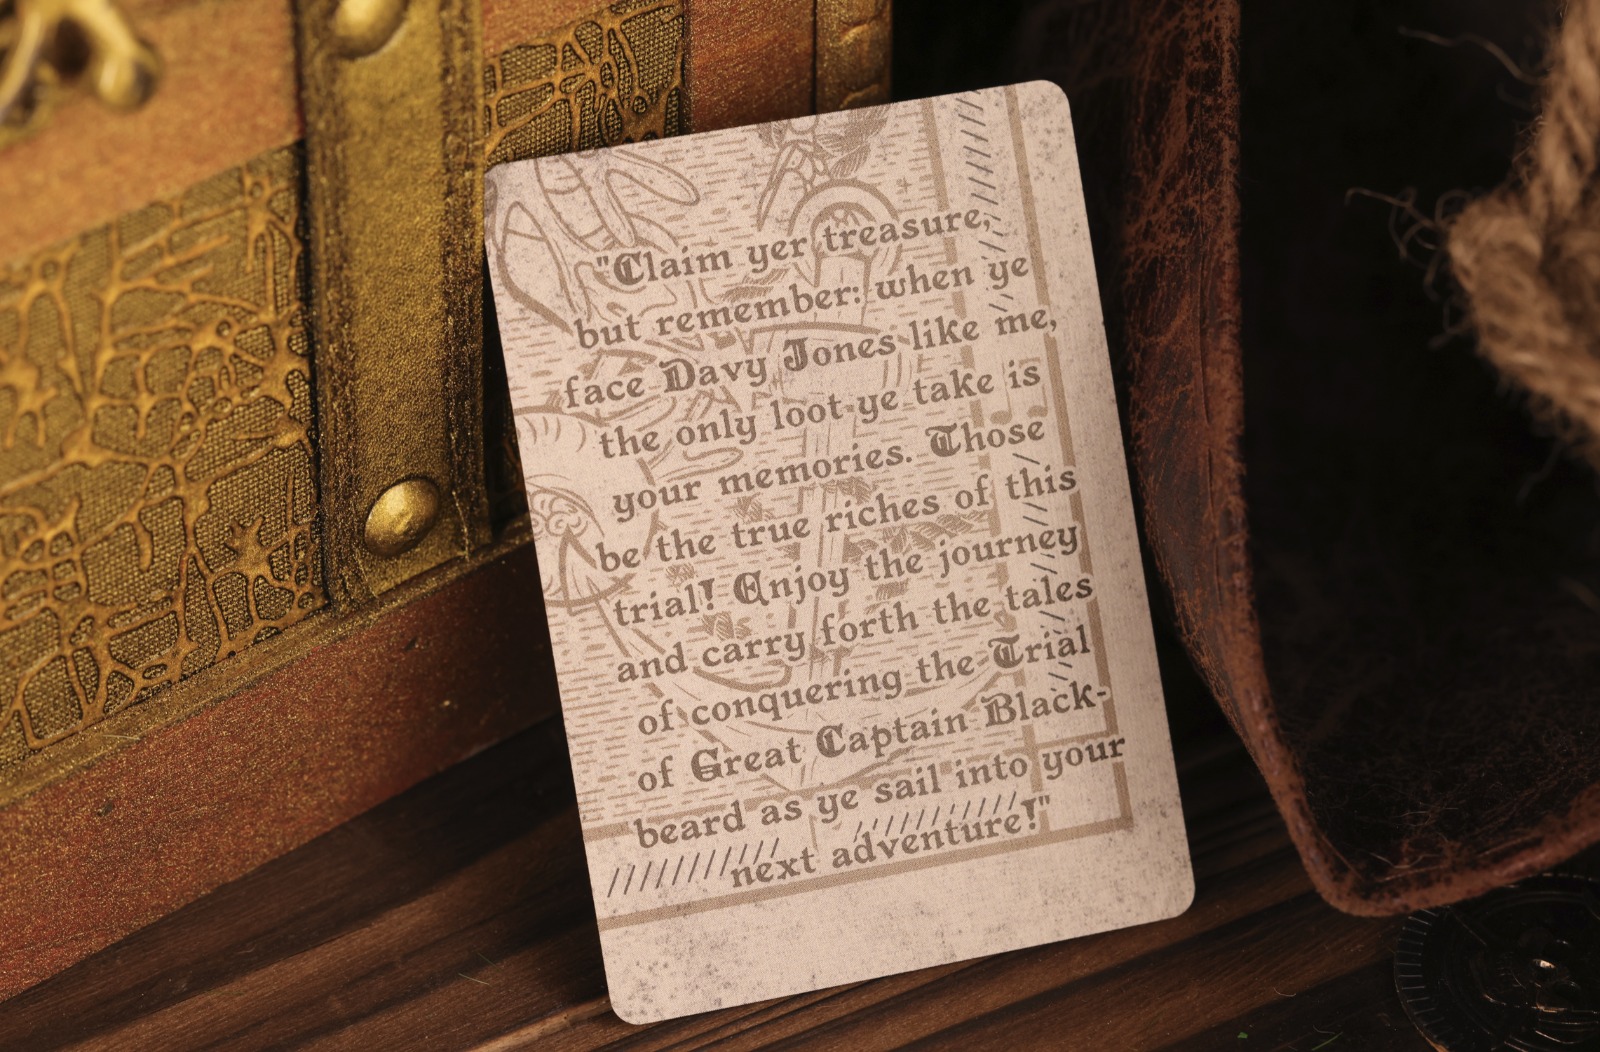 "Claim yer treasure,
but remember: when ye
face Davy Jones like me,
the only loot ye take is
your memories. Those
be the true riches of this
trial! Enjoy the journey
and carry forth the tales
of conquering the Trial
of Great Captain Black-
beard as ye sail into your
next adventure!"